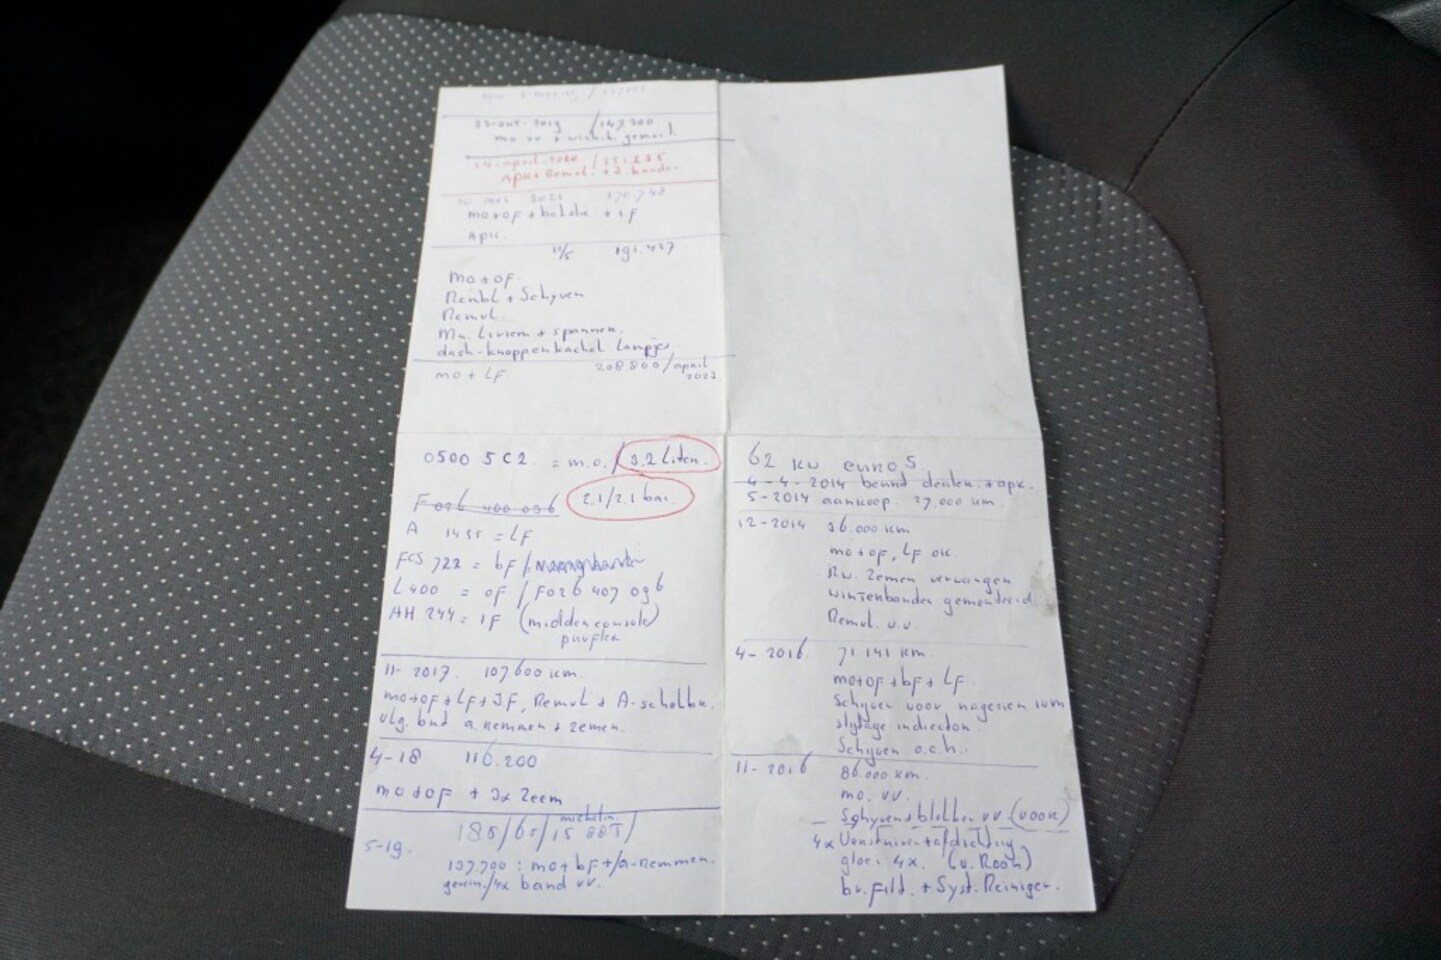 22-okt-2019 / 147.200
mo vv +
14-april-2020 / 151.275
APK + Remvl. + 2 banden
2021 170.748
mo+of + + IF
APK.
11/5 191.427
mo+of.
Remvl.
+ spannen.
dash-knoppen kachel lampjes
208.800 / april
mo + LF. 2023
0500 5C2 = m.o. / 3.2 Liter.
F 026 400 036 2.1/2.1 bar.
A 1455 = LF
FCS 722 = bF /
L400 = oF / F026 407 096
AH 244 = IF (middenconsole)
11-2017. 107600 km.
mo+of+LF+IF, Remvl +
vlg. bnd a. remmen + zemen.
4-18 116.200
mo+of + 3x Zeem
michelin.
185/65/15 88T/
5-19. 137.700 : mo+bF+/a-remmen.
4x band vv.
62 kw euro 5
4-4-2014 beurt dealer. + apk.
5-2014 aankoop. 27.000 km.
12-2014 36.000 km
mo+of, LF ok.
Rw. Zemen vervangen
winterbanden gemonteerd
Remvl. v.v.
4-2016. 71 141 km.
mo+of+bF+LF.
Schyven voor nagezien ivm
slytage indicator.
Schyven o.c.h.
11-2016 86.000 km.
mo. vv.
Schyven & blokken vv (voor)
4x Verstuiver + afdichting
gloei 4x. (v. Roon)
br. filt. + Syst. Reiniger.